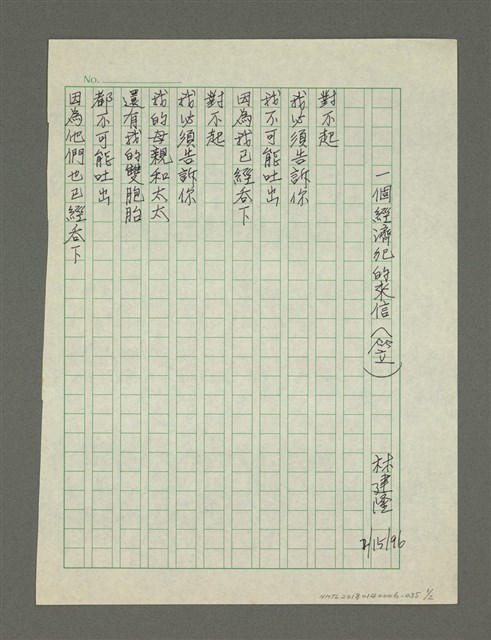 No.
一個經濟犯的來信（笠）
林建隆
2/15/96
對不起
我必須告訴你
我不可能吐出
因為我已經吞下
對不起
我必須告訴你
我的母親和太太
還有我的雙胞胎
都不可能吐出
因為他們也已經吞下
NMTL20130140006-035 1/2